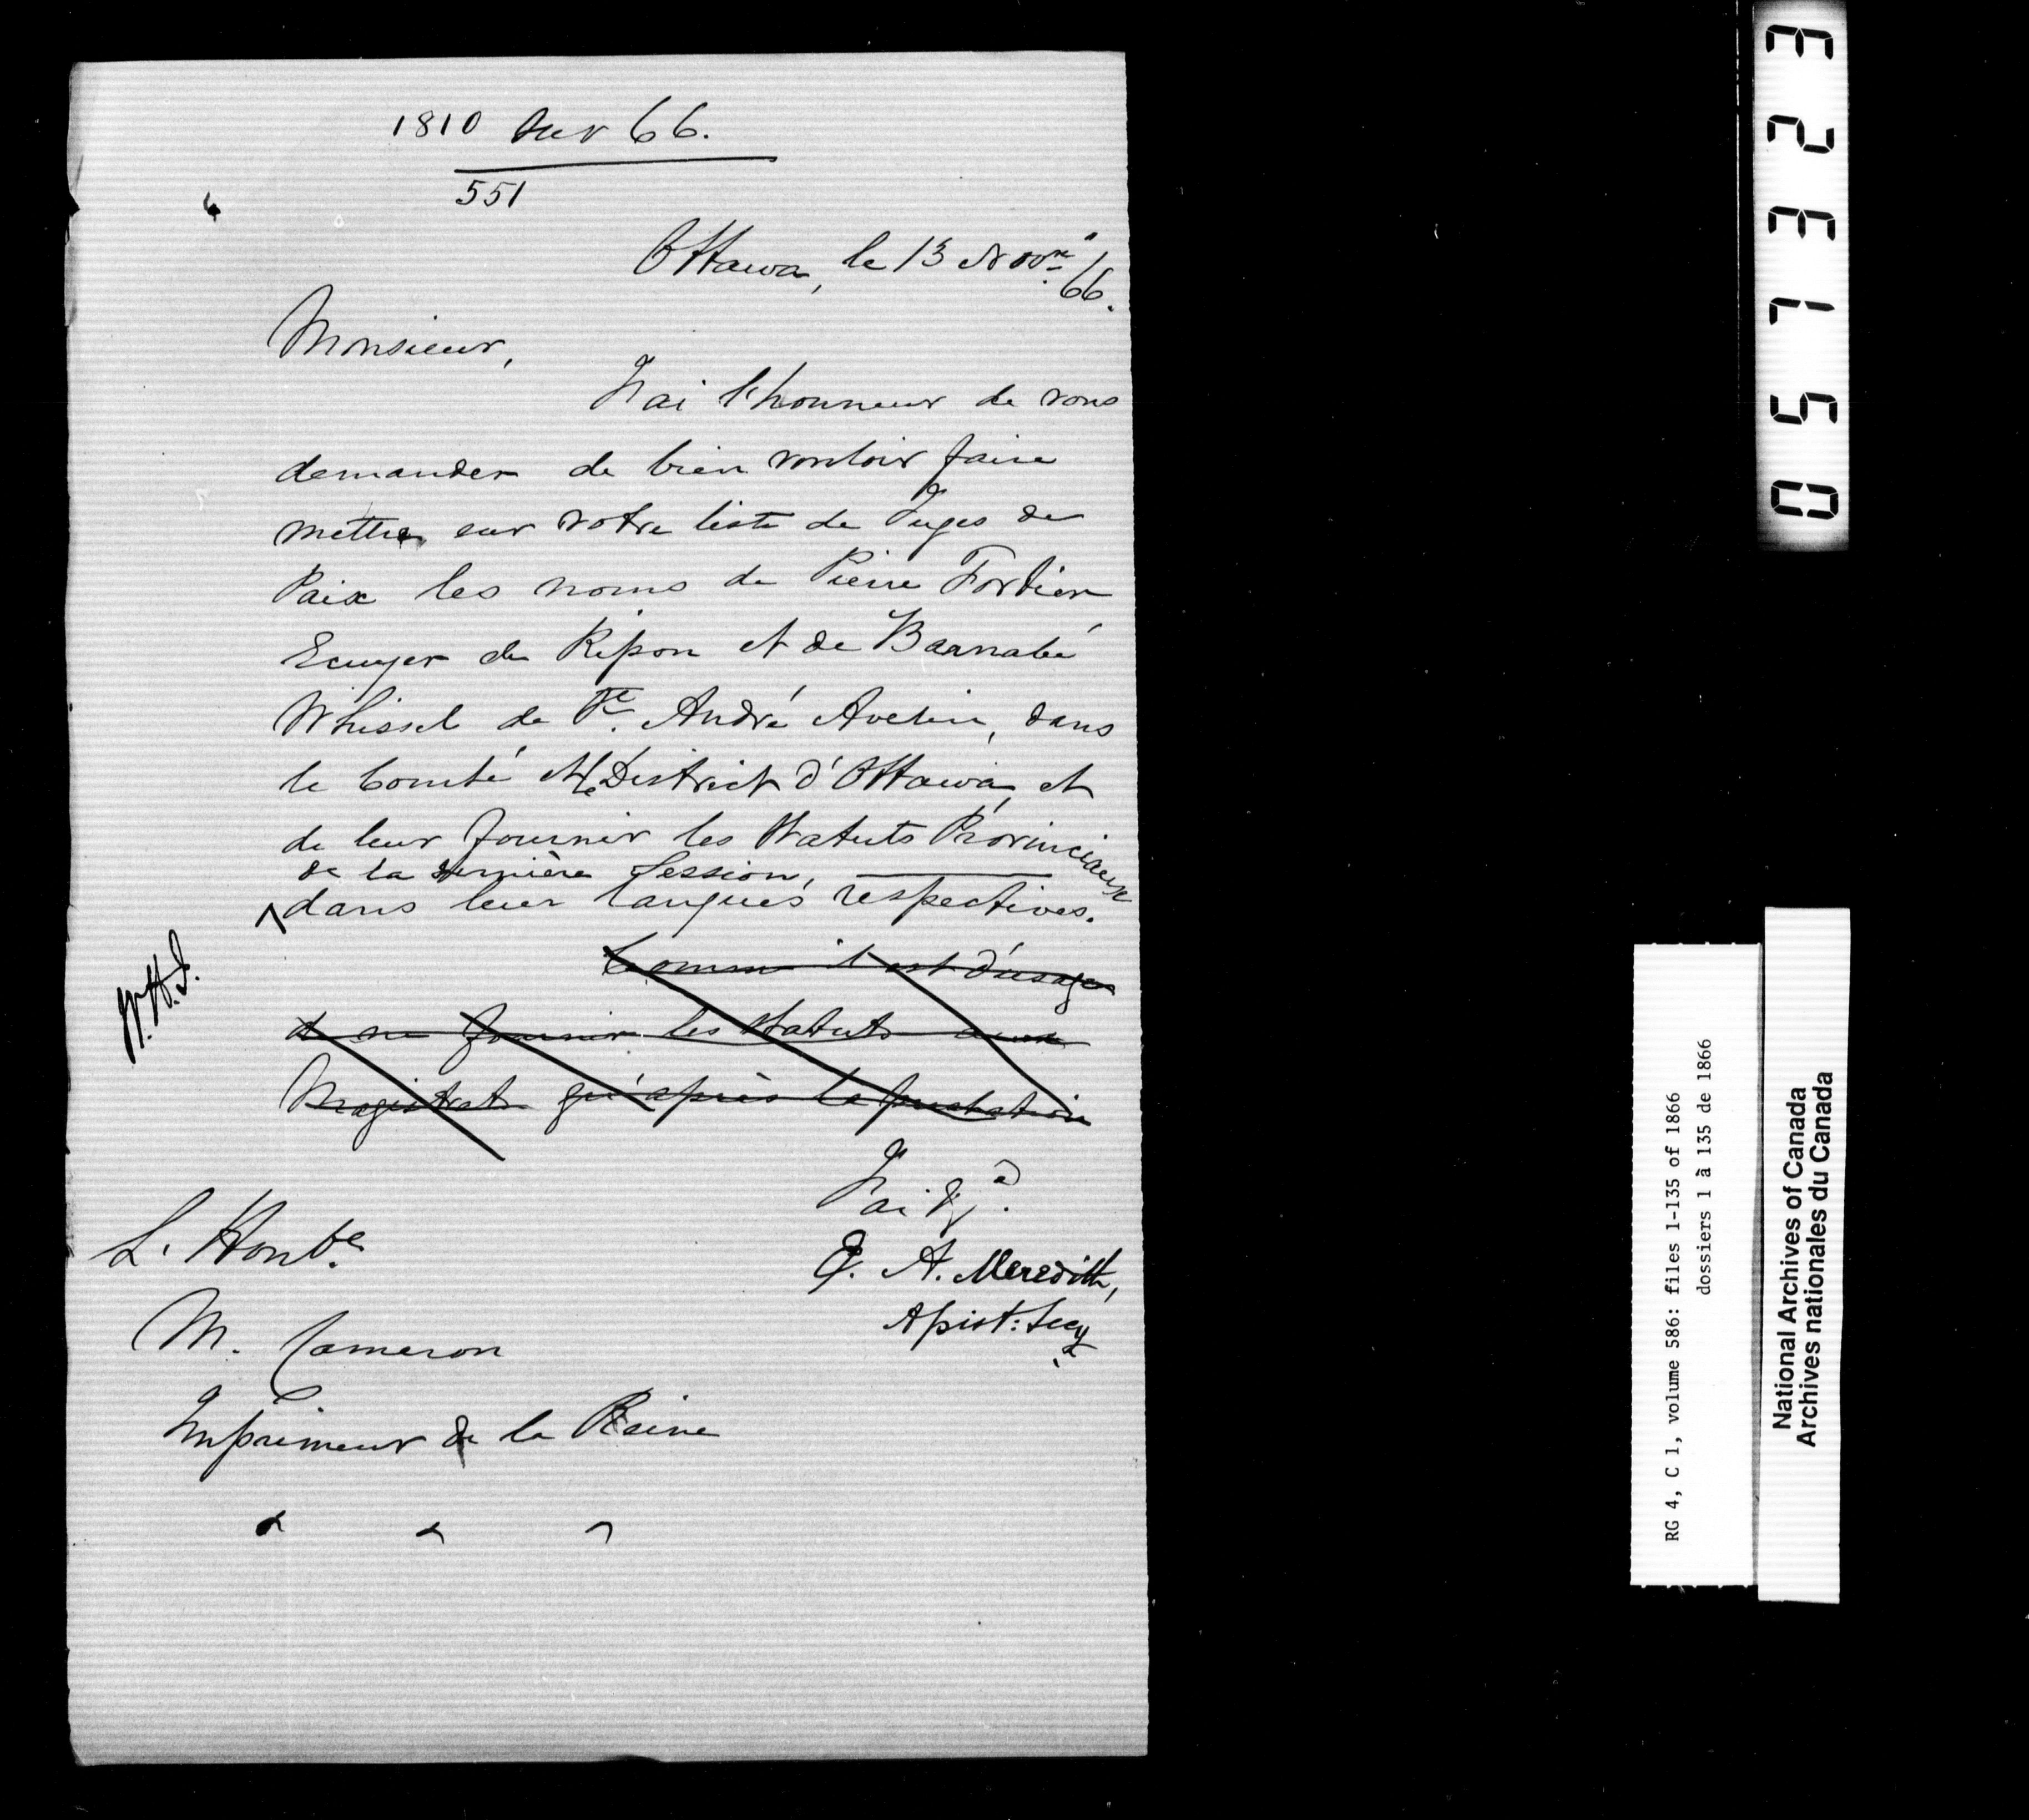 1810 sur 66.
551
Ottawa, le 13 Novre 66.
Monsieur,
J'ai l'honneur de vous
demander de bien vouloir faire
mettre sur votre liste de Juges de
Paix les noms de Pierre Fortier
Ecuyer de Ripon et de Barnabé
Whissel de St. André Avelin, dans
le Comté et le District d'Ottawa, et
de leur fournir les Statuts Provinciaux
de la dernière Session,
dans leur langues respectives.
Comme il est d'usage
de ne fournir les Statuts aux
Magistrats qu'après la prestation
J'ai &a.
E. A. Meredith,
Assist: Secy
L. Honble
M. Cameron
Imprimeur de la Reine
051323
RG 4, C 1, volume 586: files 1-135 of 1866
dossiers 1 à 135 de 1866
National Archives of Canada
Archives nationales du Canada